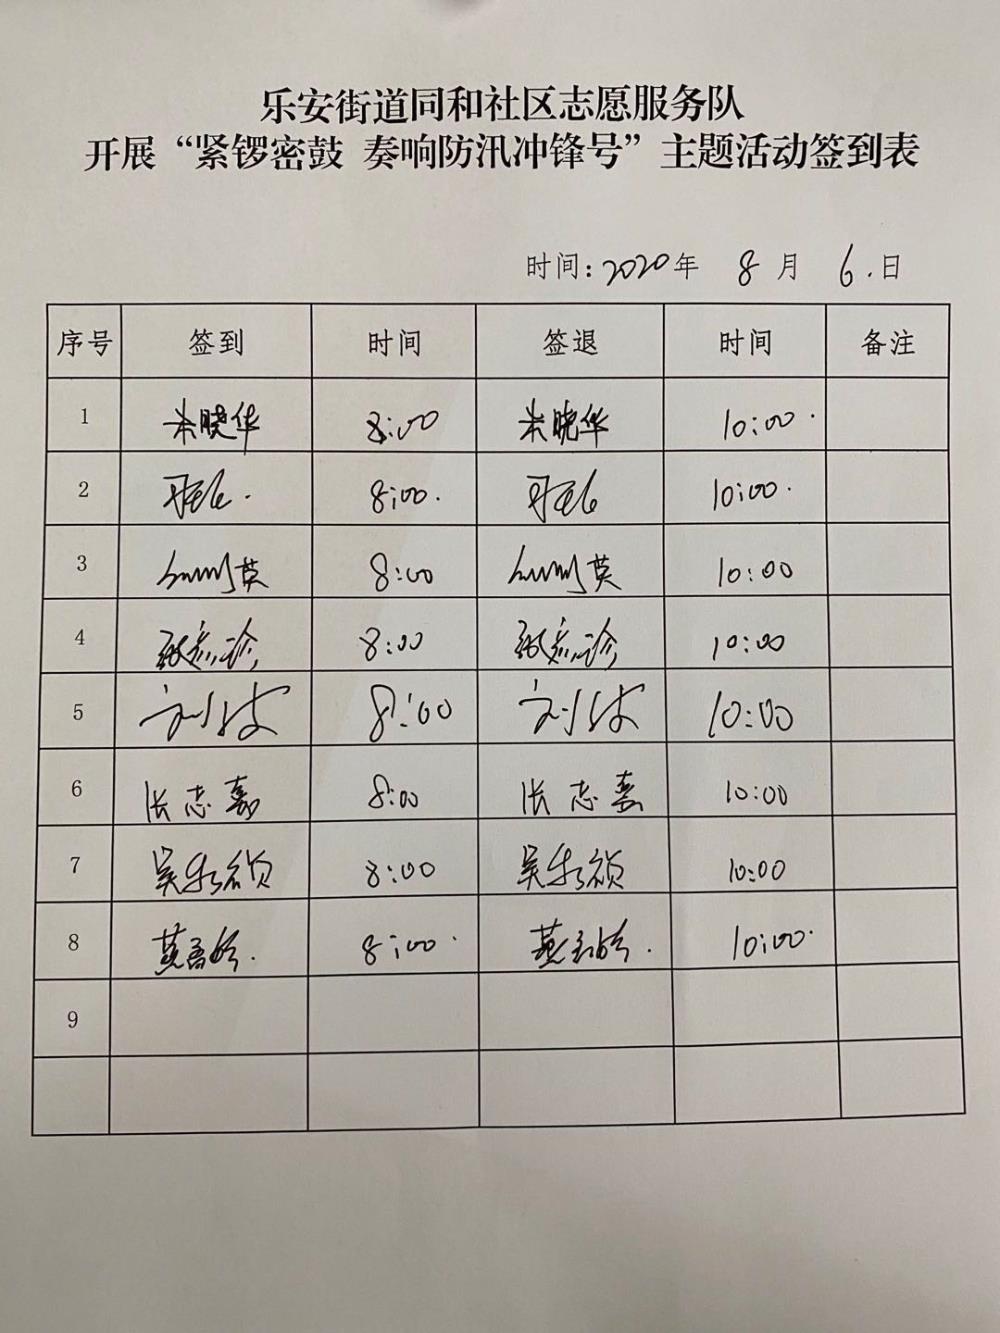 乐安街道同和社区志愿服务队
开展“紧锣密鼓 奏响防汛冲锋号”主题活动签到表
时间：2020年 8月 6.日
序号 签到 时间 签退 时间 备注
1 米晓华 8:00 米晓华 10:00
2 8:00 10:00
3 8:00 10:00
4 8:00 10:00
5 刘波 8:00 刘波 10:00
6 张志嘉 8:00 张志嘉 10:00
7 8:00 10:00
8 8:00 10:00
9